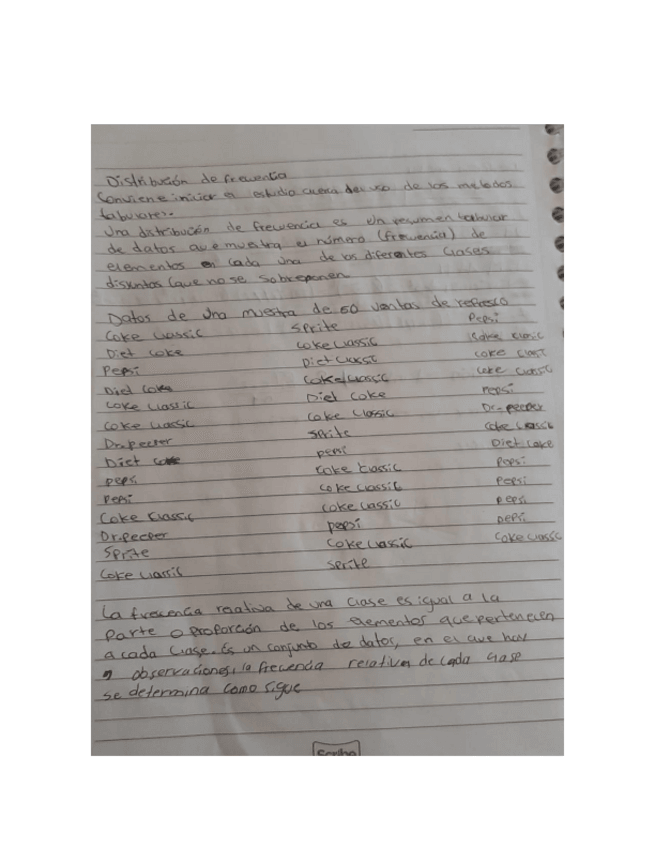 Distribución de frecuencia
Conviene iniciar el estudio acerca del uso de los metodos
tabulares.
Una distribución de frecuencia es un resumen tabular
de datos que muestra el número (frecuencia) de
elementos en cada una de los diferentes clases
disjuntas (que no se sobreponen
Datos de una muestra de 50 ventas de refresco
Coke Classic Sprite Pepsi
Diet Coke Coke Classic Coke Classic
Pepsi Diet Classic Coke Classic
Diet Coke Coke Classic Coke Classic
Coke Classic Diet Coke Pepsi
Coke Classic Coke Classic Dr-peeper
Dr.peeper Sprite Coke Classic
Diet Coke pepsi Diet Coke
pepsi Coke Classic Pepsi
Pepsi Coke Classic Pepsi
Coke Classic Coke Classic Pepsi
Dr.peeper pepsi pepsi
Sprite Coke Classic Coke Classic
Coke Classic Sprite
La frecuencia relativa de una clase es igual a la
parte o proporción de los elementos que pertenecen
a cada clase. Es un conjunto de datos, en el que hay
n observaciones, la frecuencia relativa de cada clase
se determina como sigue
Scribe